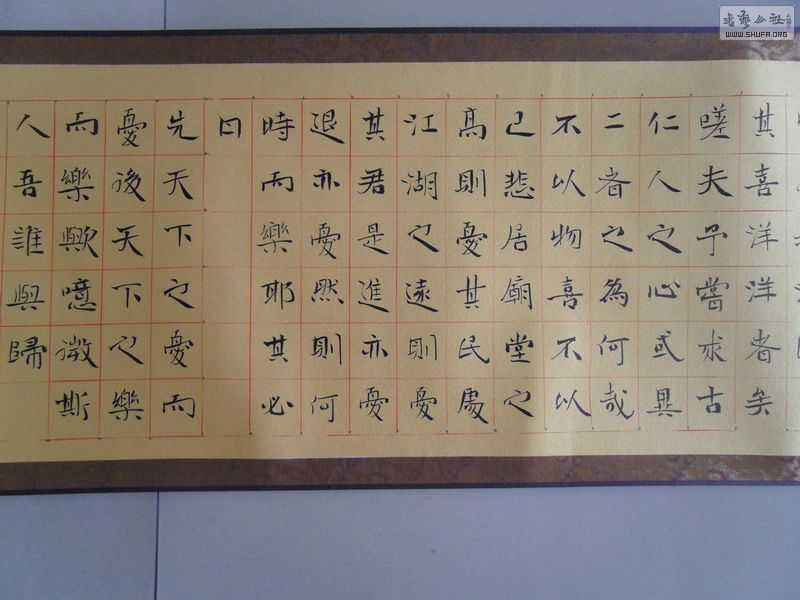 其喜洋洋者矣
嗟夫予嘗求古
仁人之心或異
二者之為何哉
不以物喜不以
己悲居廟堂之
高則憂其民處
江湖之遠則憂
其君是進亦憂
退亦憂然則何
時而樂耶其必
曰
先天下之憂而
憂後天下之樂
而樂歟噫微斯
人吾誰與歸
WWW.SHUFA.ORG